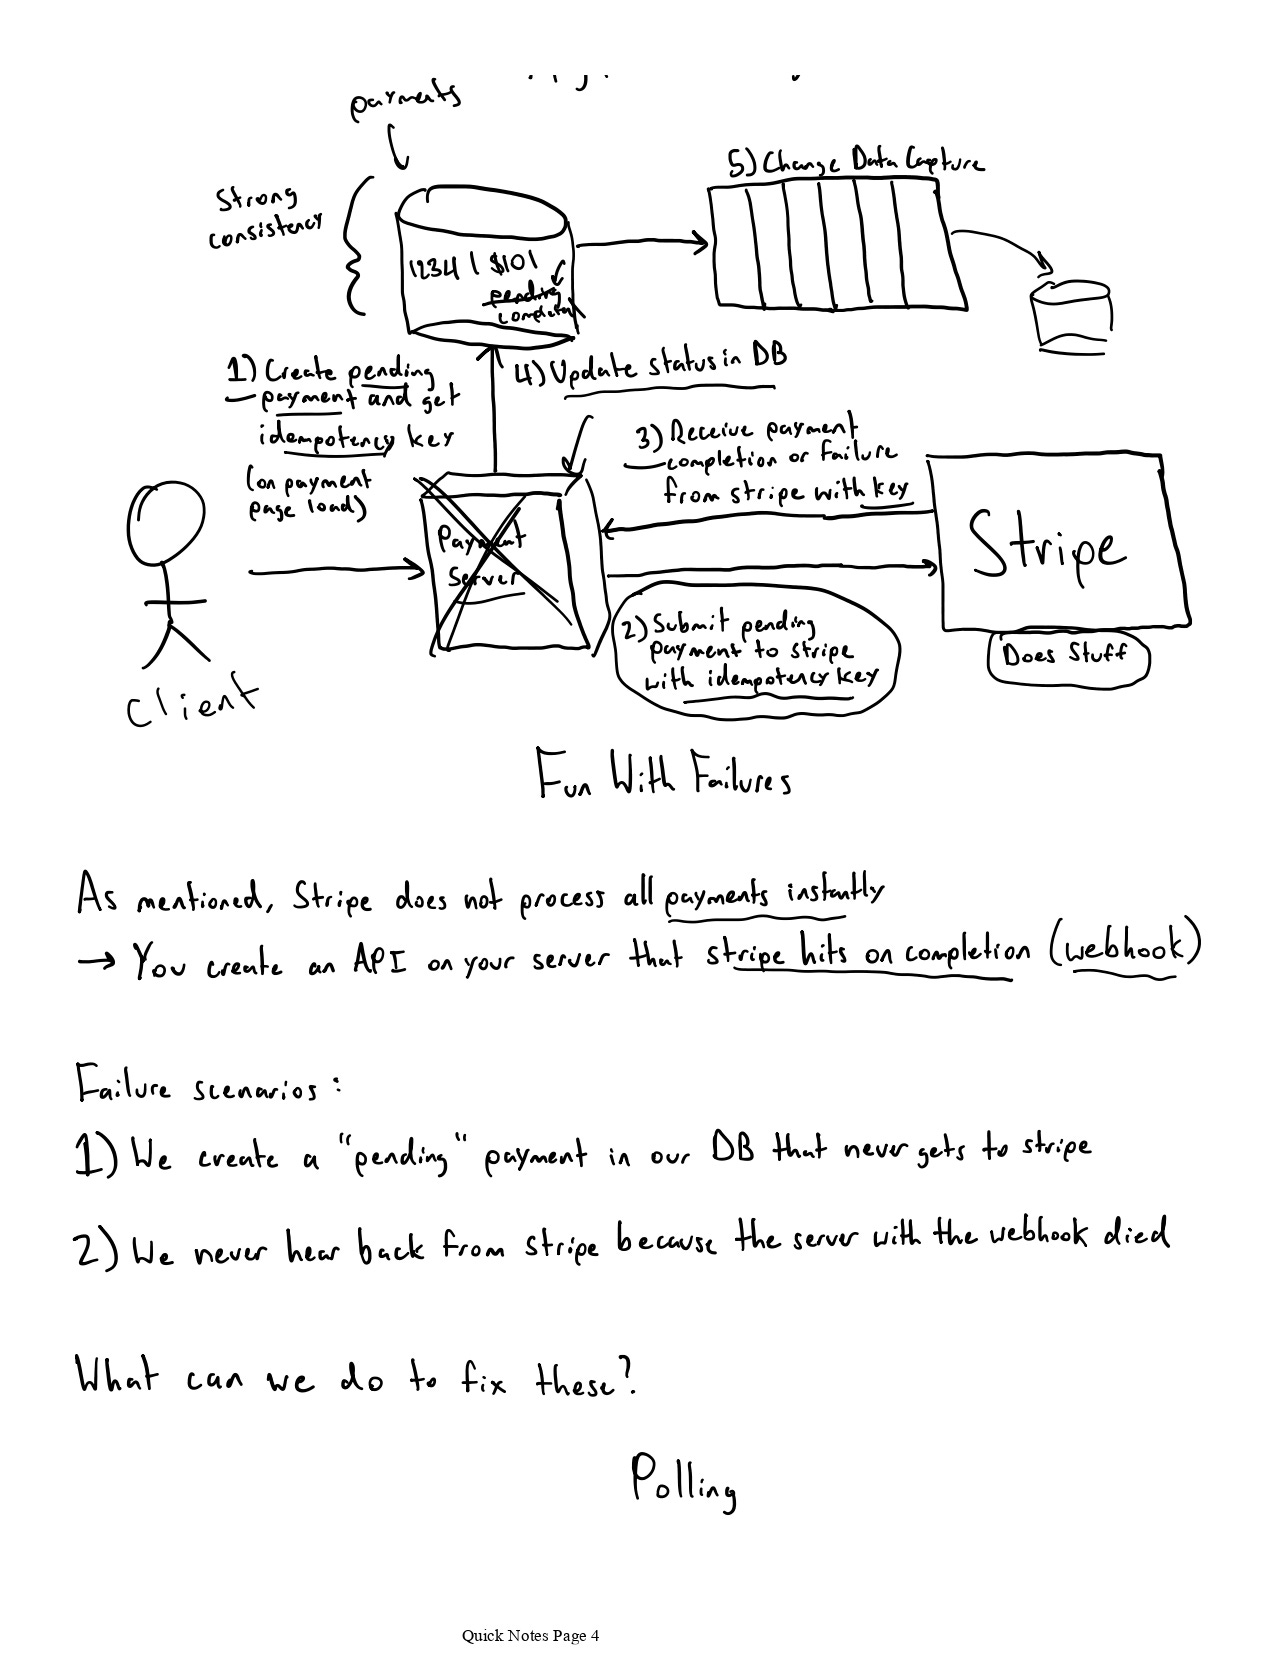 payments
5) Change Data Capture
Strong
consistency
1234 | $10 |
pending
completed
1) Create pending
payment and get
idempotency key
(on payment
page load)
4) Update status in DB
3) Receive payment
completion or failure
from stripe with key
Payment
Server
Stripe
2) Submit pending
payment to stripe
with idempotency key
Does Stuff
Client
Fun With Failures
As mentioned, Stripe does not process all payments instantly
→ You create an API on your server that stripe hits on completion (webhook)
Failure scenarios:
1) We create a "pending" payment in our DB that never gets to stripe
2) We never hear back from stripe because the server with the webhook died
What can we do to fix these?
Polling
Quick Notes Page 4